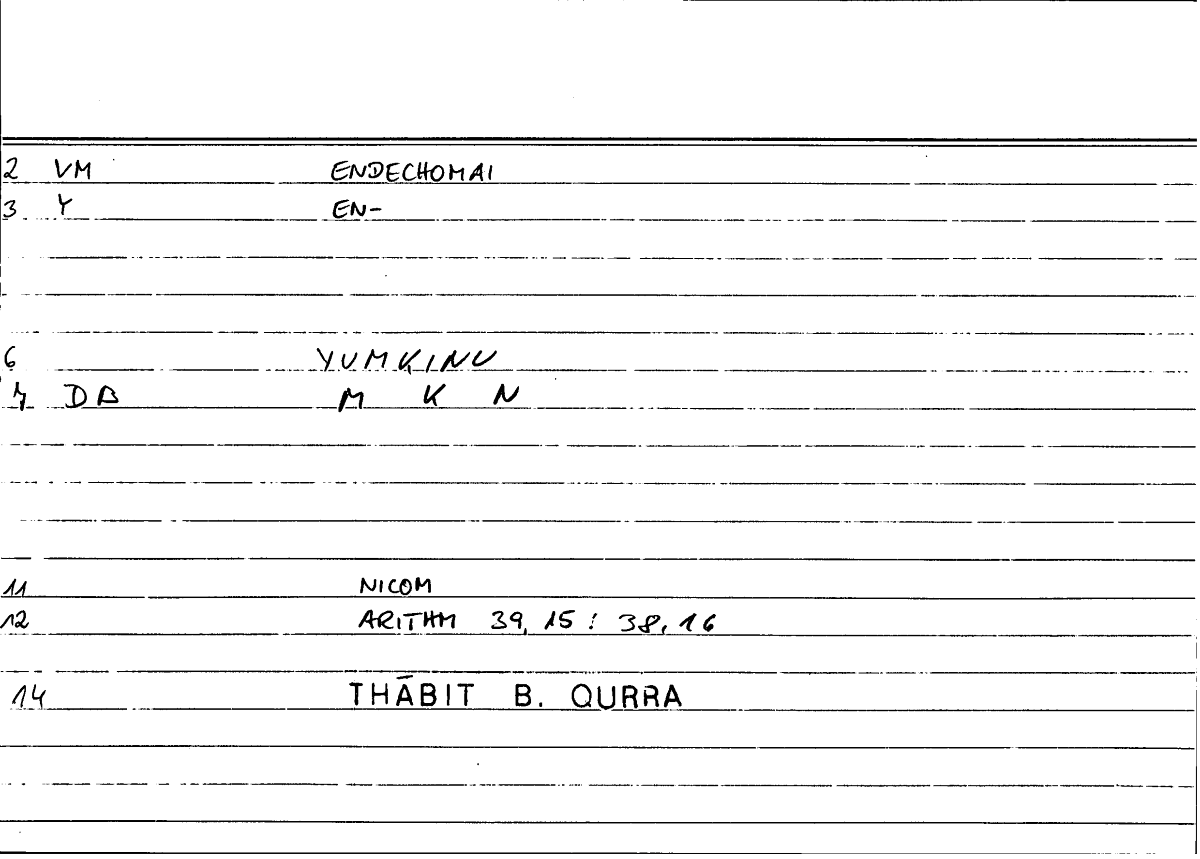 2 VM ENDECHOMAI
3 Y EN-
6 YUMKINU
7 DB M K N
11 NICOM
12 ARITHM 39, 15 : 38, 16
14 THĀBIT B. QURRA